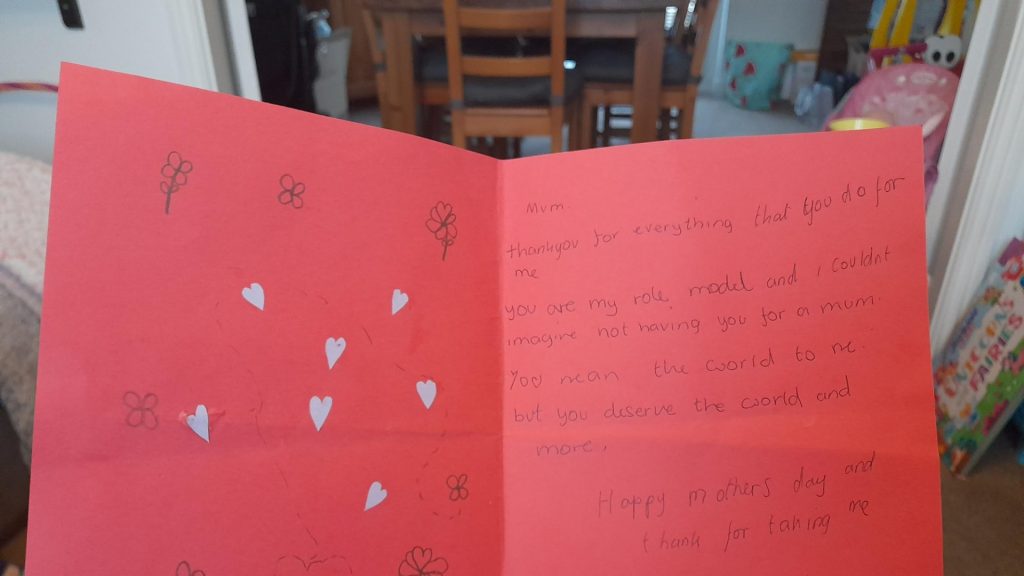 Mum.
thankyou for everything that you do for
me
you are my role model and i couldnt
imagine not having you for a mum.
You mean the world to me.
but you deserve the world and
more.
Happy mothers day and
thank for taking me
UNICORNS
FAIRIES